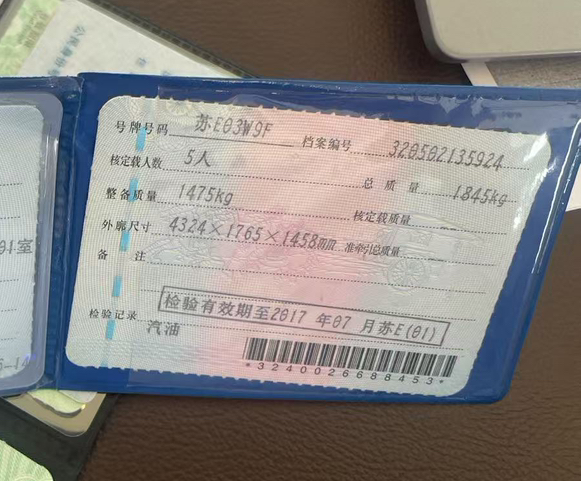 号牌号码 苏E03W9F 档案编号 320502135924
核定载人数 5人 总质量 1845kg
整备质量 1475kg 核定载质量
外廓尺寸 4324×1765×1458mm 准牵引总质量
备注
检验有效期至2017 年07 月苏E(01)
检验记录
汽油
*3240026688453*
01室